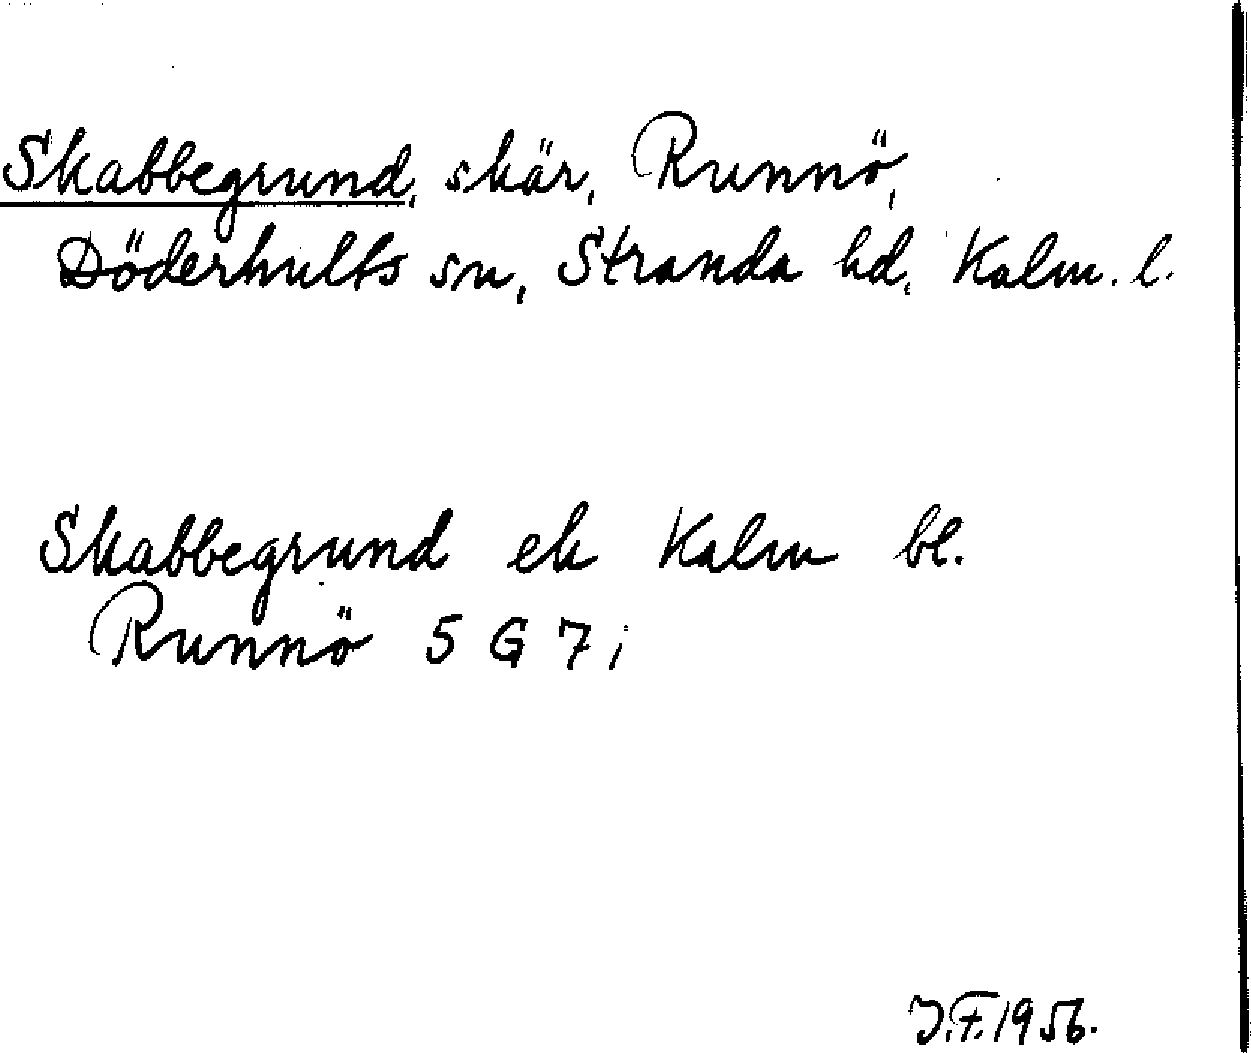 Skabbegrund, skär, Runnö,
Döderhults sn, Stranda hd, Kalm. l.
Skabbegrund ek Kalm bl.
Runnö 5 G 7 i
J.F. 1956.